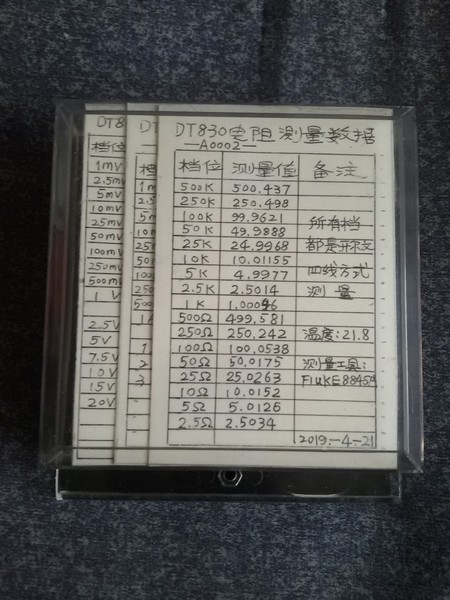 DT830电阻测量数据
—A0002—
档位 测量值 备注
500K 500.437
250K 250.498
100K 99.9621 所有档
50K 49.9888
25K 24.9968 都是开尔文
10K 10.01155
5K 4.9977 四线方式
2.5K 2.5014 测量
1K 1.00096
500Ω 499.581
250Ω 250.242 温度:21.8
100Ω 100.0538
50Ω 50.0175 测量工具:
25Ω 25.0263 FLUKE8845A
10Ω 10.0152
5Ω 5.0126
2.5Ω 2.5034
2019-4-21
DT8
档位
1mV
2.5mV
5mV
10mV
25mV
50mV
100mV
250mV
500mV
1V
2.5V
5V
7.5V
10V
15V
20V
DT
档
1
2
3